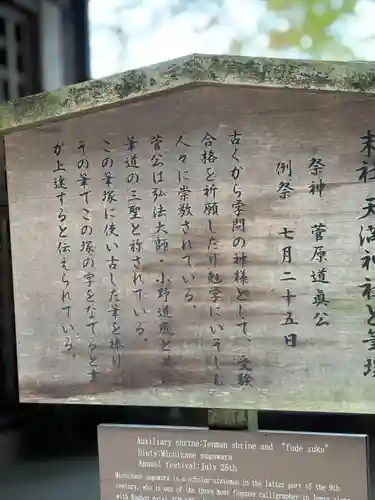 末社 天満神社と筆塚
祭神 菅原道真公
例祭 七月二十五日
古くから学問の神様として、受験
合格を祈願したり勉学にいそしむ
人々に崇敬されている。
菅公は弘法大師・小野道風と共に
筆道の三聖と称されている。
この筆塚に使い古した筆を捧げ
その筆でこの塚の字をなでると書
が上達すると伝えられている。
Auxiliary shrine:Tenman shrine and "fude zuka"
Diety:Michizane sugawara
Annual festival:July 25th
Michizane sugawara is a scholor-statesman in the latter part of the 9th
century, who is one of the three most famous calligrapher in Japan along
with